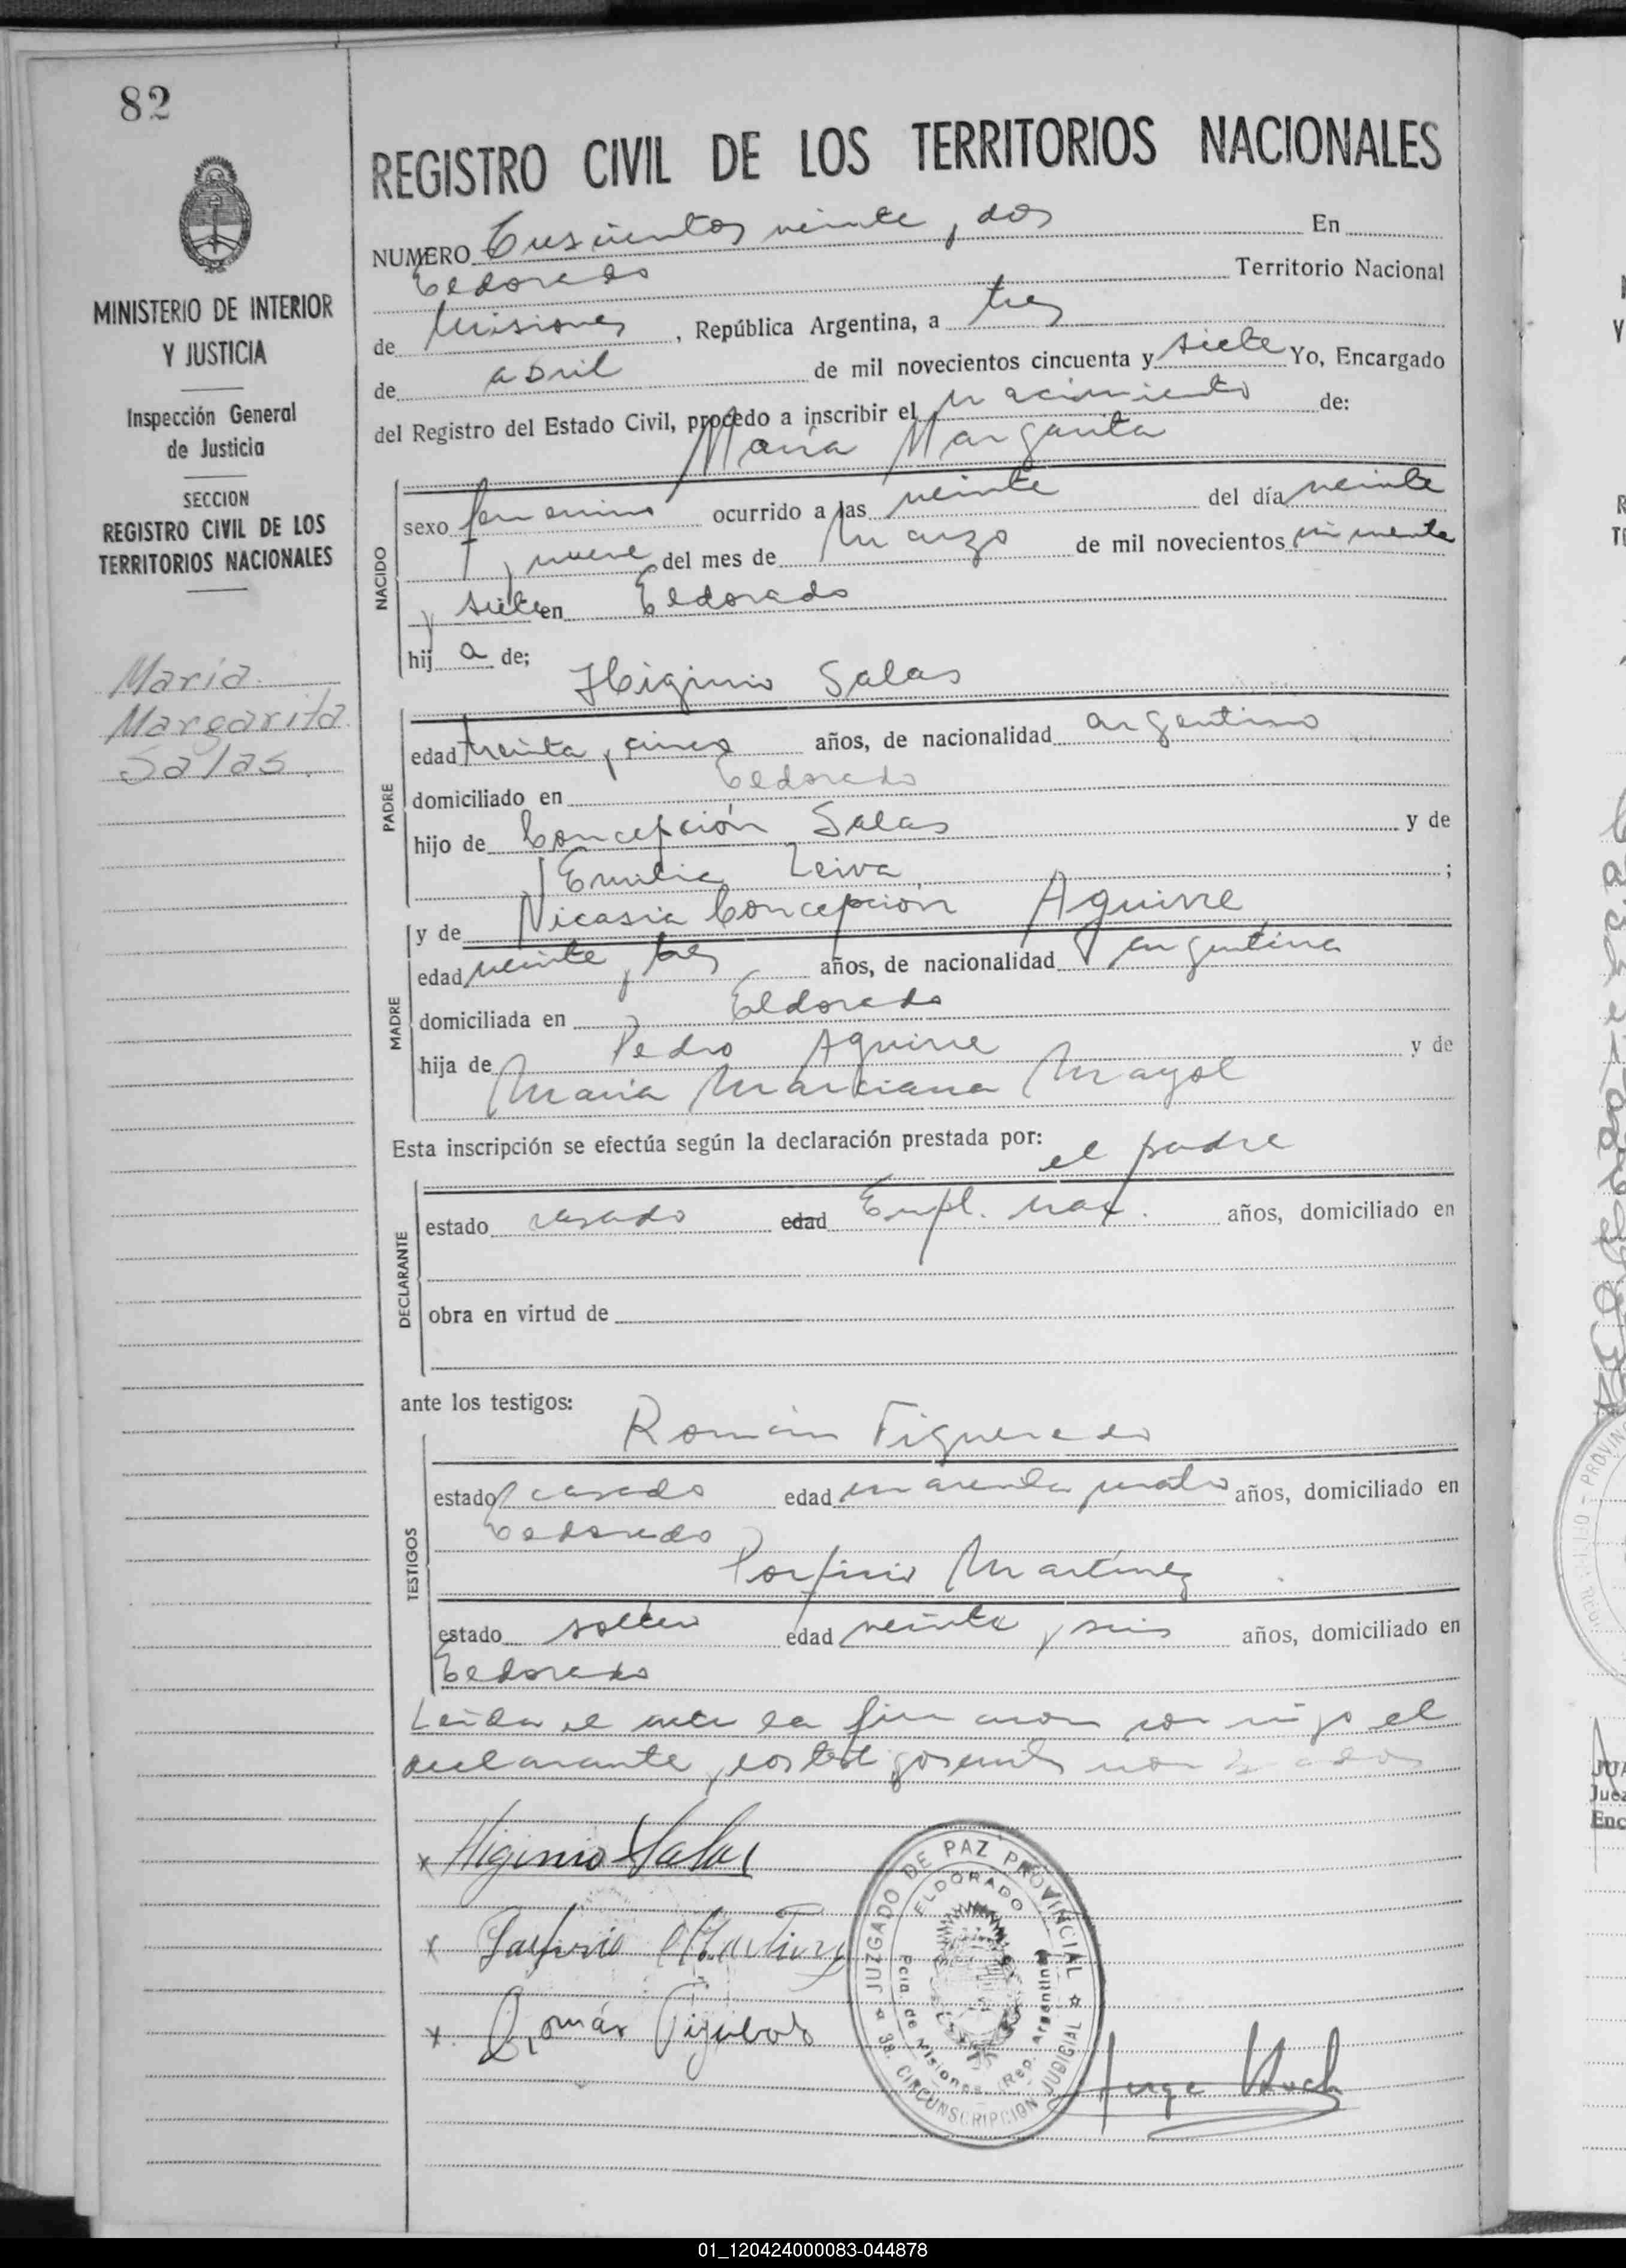 82
MINISTERIO DE INTERIOR
Y JUSTICIA
Inspección General
de Justicia
SECCION
REGISTRO CIVIL DE LOS
TERRITORIOS NACIONALES
María
Margarita
Salas.
REGISTRO CIVIL DE LOS TERRITORIOS NACIONALES
NUMERO Trescientos veinte y dos En
Eldorado Territorio Nacional
de Misiones, República Argentina, a tres
de abril de mil novecientos cincuenta y siete Yo, Encargado
del Registro del Estado Civil, procedo a inscribir el nacimiento de:
María Margarita
NACIDO
sexo femenino ocurrido a las veinte del día veinte
y nueve del mes de Marzo de mil novecientos cincuenta
y siete en Eldorado
hij a de;
Higinio Salas
PADRE
edad treinta y cinco años, de nacionalidad argentino
domiciliado en Eldorado
hijo de Concepción Salas y de
Emilia Leiva ;
y de Nicasia Concepción Aguirre
MADRE
edad veinte y tres años, de nacionalidad argentina
domiciliada en Eldorado
hija de Pedro Aguirre y de
María Marciana Mayol
Esta inscripción se efectúa según la declaración prestada por:
el padre
DECLARANTE
estado casado edad Empl. nac. años, domiciliado en
obra en virtud de
ante los testigos:
Román Figueredo
TESTIGOS
estado casado edad cuarenta y cuatro años, domiciliado en
Eldorado
Porfirio Martínez
estado soltero edad veinte y seis años, domiciliado en
Eldorado
Leida el acta la firmaron conmigo el
declarante y los testigos
x Higinio Salas
x Porfirio Martinez
x Román
Jorge
JUZGADO DE PAZ PROVINCIAL
ELDORADO
Pcia. de Misiones (Rep. Argentina)
3a. CIRCUNSCRIPCION JUDICIAL
01_120424000083-044878